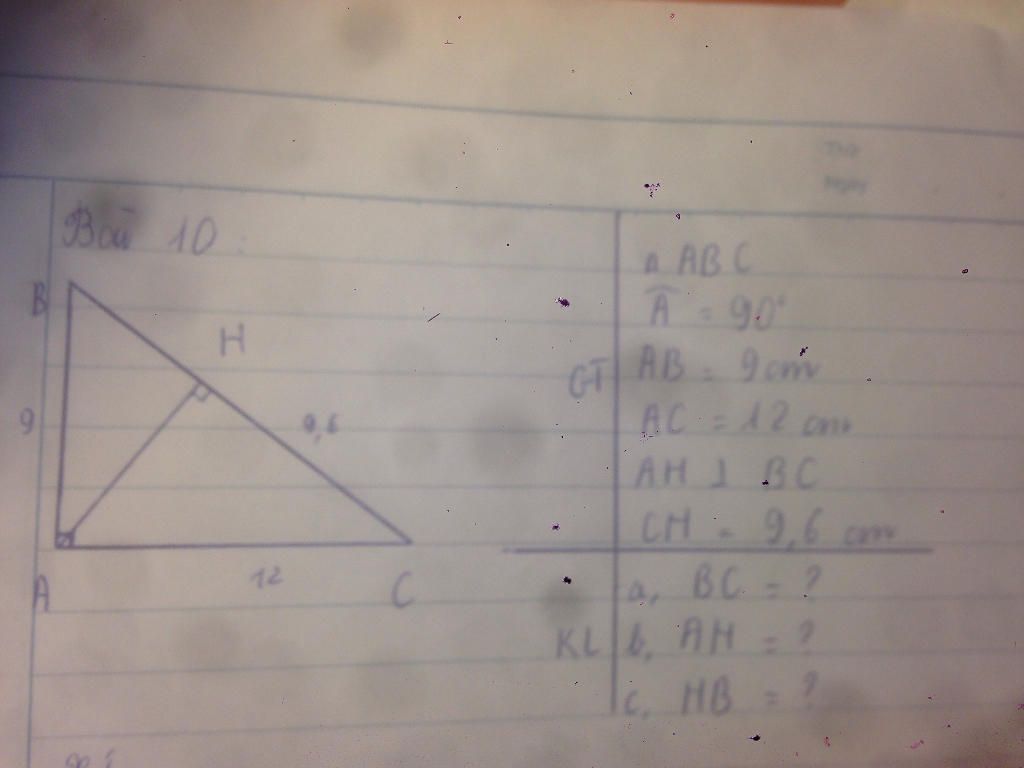 Thứ
Ngày
Bài 10:
B
H
9
9,6
A
12
C
GT
Δ ABC
Â = 90°
AB = 9 cm
AC = 12 cm
AH ⊥ BC
CH = 9,6 cm
KL
a, BC = ?
b, AH = ?
c, HB = ?